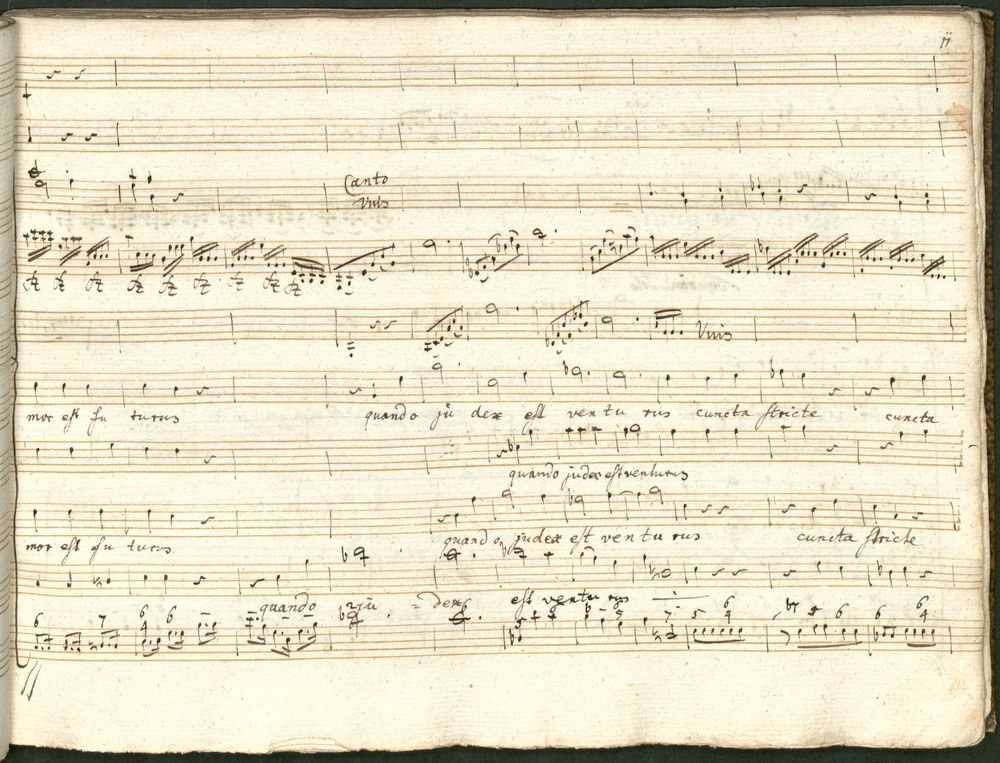 11
Canto
Vnis
Vnis
mor est fu turus quando ju dex est ventu rus cuncta stricte cuncta
quando judex est venturus
mor est fu turus quando judex est ventu rus cuncta stricte
quando ju = dex est ventu rus
6 7 6 4 6 6 5 7 5 6 4 b7 5 6 6 6 4